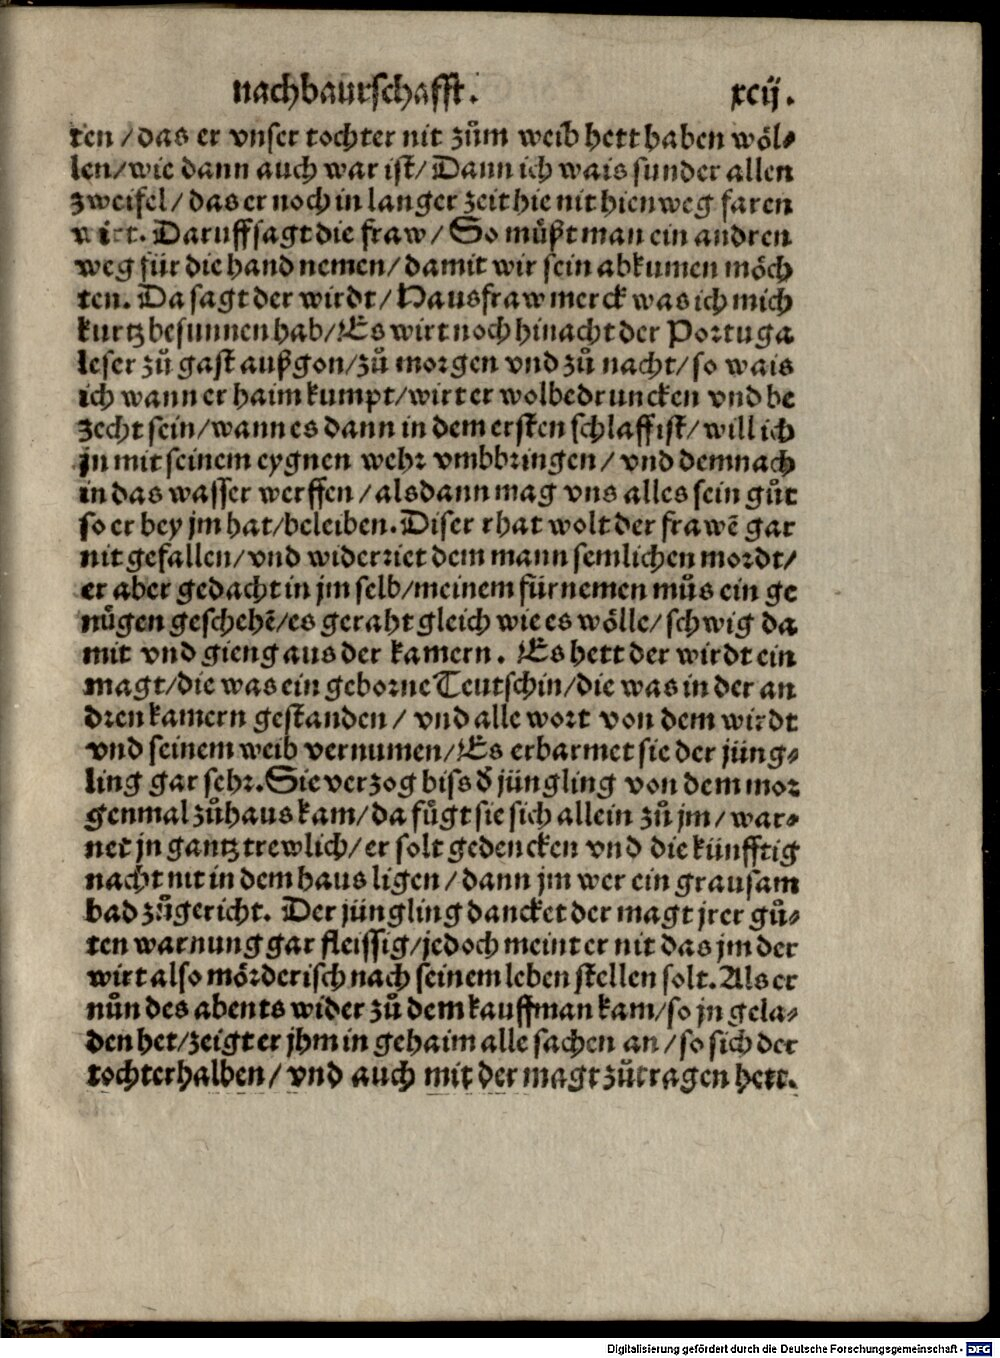 nachbaurschafft. xcij.
ten / das er vnser tochter nit zům weib hett haben wöl⸗
len / wie dann auch war ist / Dann ich wais sunder allen
zweifel / das er noch in langer zeit hie nit hienweg faren
wirt. Daruff sagt die fraw / So můßt man ein andren
weg für die hand nemen / damit wir sein abkumen möch
ten. Da sagt der wirdt / Hausfraw merck was ich mich
kurtz besunnen hab / Es wirt noch hinacht der Portuga
leser zů gast außgon / zů morgen vnd zů nacht / so wais
ich wann er haim kumpt / wirt er wolbedruncken vnd be
zecht sein / wann es dann in dem ersten schlaff ist / will ich
jn mit seinem eygnen wehr vmbbringen / vnd demnach
in das wasser werffen / alsdann mag vns alles sein gůt
so er bey jm hat / beleiben. Diser rhat wolt der frawẽ gar
nit gefallen / vnd widerriet dem mann semlichen mordt /
er aber gedacht in jm selb / meinem fürnemen můs ein ge
nůgen geschehẽ / es geraht gleich wie es wölle / schwig da
mit vnd gieng aus der kamern. Es hett der wirdt ein
magt / die was ein geborne Teutschin / die was in der an
dren kamern gestanden / vnd alle wort von dem wirdt
vnd seinem weib vernumen / Es erbarmet sie der jüng⸗
ling gar sehr. Sie verzog biss d̕ jüngling von dem mor
genmal zůhaus kam / da fůgt sie sich allein zů jm / war⸗
net jn gantz trewlich / er solt gedencken vnd die künfftig
nacht nit in dem haus ligen / dann jm wer ein grausam
bad zůgericht. Der jüngling dancket der magt jrer gů⸗
ten warnung gar fleissig / jedoch meint er nit das jm der
wirt also mörderisch nach seinem leben stellen solt. Als er
nůn des abents wider zů dem kauffman kam / so jn gela⸗
den het / zeigt er jhm in gehaim alle sachen an / so sich der
tochterhalben / vnd auch mit der magt zůtragen hett.
Digitalisierung gefördert durch die Deutsche Forschungsgemeinschaft - DFG